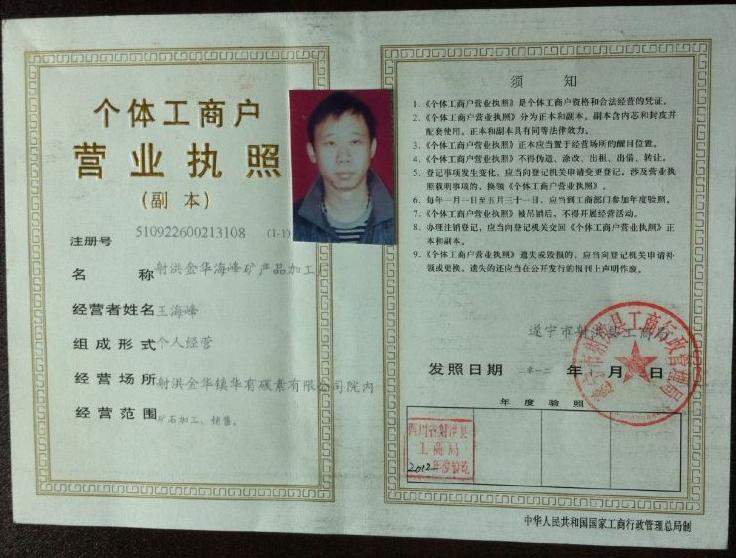 个体工商户
营业执照
(副本)
注册号 510922600213108 (1-1)
名称 射洪金华海峰矿产品加工厂
经营者姓名 王海峰
组成形式 个人经营
经营场所 射洪金华镇华有碳素有限公司院内
经营范围 矿石加工、销售。
须知
1.《个体工商户营业执照》是个体工商户资格和合法经营的凭证。
2.《个体工商户营业执照》分为正本和副本。副本含内芯和封皮并
配套使用。正本和副本具有同等法律效力。
3.《个体工商户营业执照》正本应当置于经营场所的醒目位置。
4.《个体工商户营业执照》不得伪造、涂改、出租、出借、转让。
5.登记事项发生变化,应当向登记机关申请变更登记。涉及营业执
照载明事项的,换领《个体工商户营业执照》。
6.每年一月一日至五月三十一日,应当到工商部门参加年度验照。
7.《个体工商户营业执照》被吊销后,不得开展经营活动。
8.办理注销登记,应当向登记机关交回《个体工商户营业执照》正
本和副本。
9.《个体工商户营业执照》遗失或毁损的,应当向登记机关申请补
领或更换。遗失的还应当在公开发行的报刊上声明作废。
遂宁市射洪县工商局
遂宁市射洪县工商行政管理局
发照日期 二零一二 年 月 日
年度验照
四川省射洪县
工商局
2012年度验讫
中华人民共和国国家工商行政管理总局制